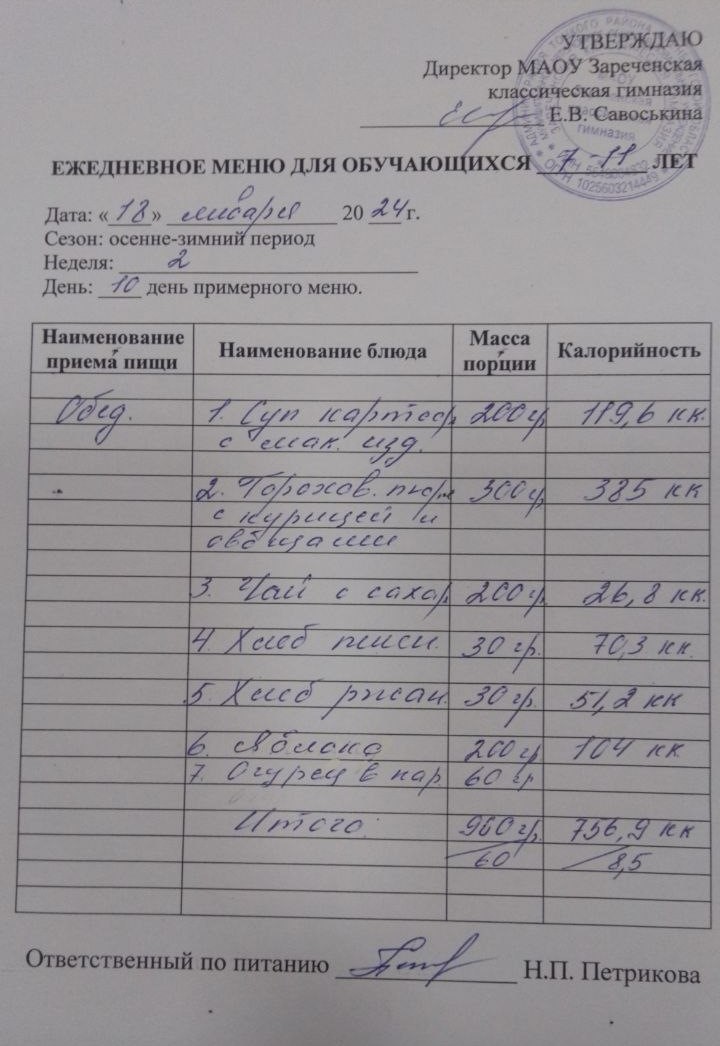 УТВЕРЖДАЮ
Директор МАОУ Зареченская
классическая гимназия
Е.В. Савоськина
гимназия
ОГРН 1025603214449
ЕЖЕДНЕВНОЕ МЕНЮ ДЛЯ ОБУЧАЮЩИХСЯ 7-11 ЛЕТ
Дата: «18» января 2024 г.
Сезон: осенне-зимний период
Неделя: 2
День: 10 день примерного меню.
Наименование приема пищи Наименование блюда Масса порции Калорийность
Обед. 1. Суп картоф 200гр 119,6 кк.
с мак. изд.
2. Горохов. пюре 300гр 385 кк
с курицей и
овощами
3. Чай с сахар 200гр. 26,8 кк.
4. Хлеб пшен. 30 гр. 70,3 кк.
5. Хлеб ржан. 30 гр. 51,2 кк
6. Яблоко 200гр 104 кк
7. Огурец в нар. 60 гр
Итого: 960гр. 756,9 кк
60 8,5
Ответственный по питанию Н.П. Петрикова